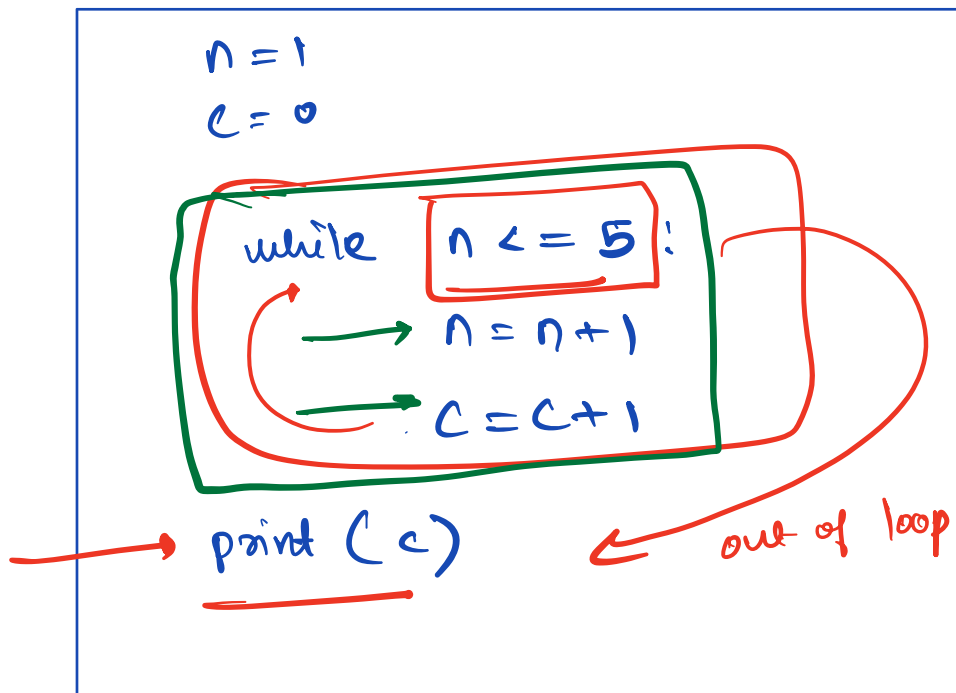 n = 1
c = 0
while n <= 5 :
n = n + 1
c = c + 1
print (c)
out of loop